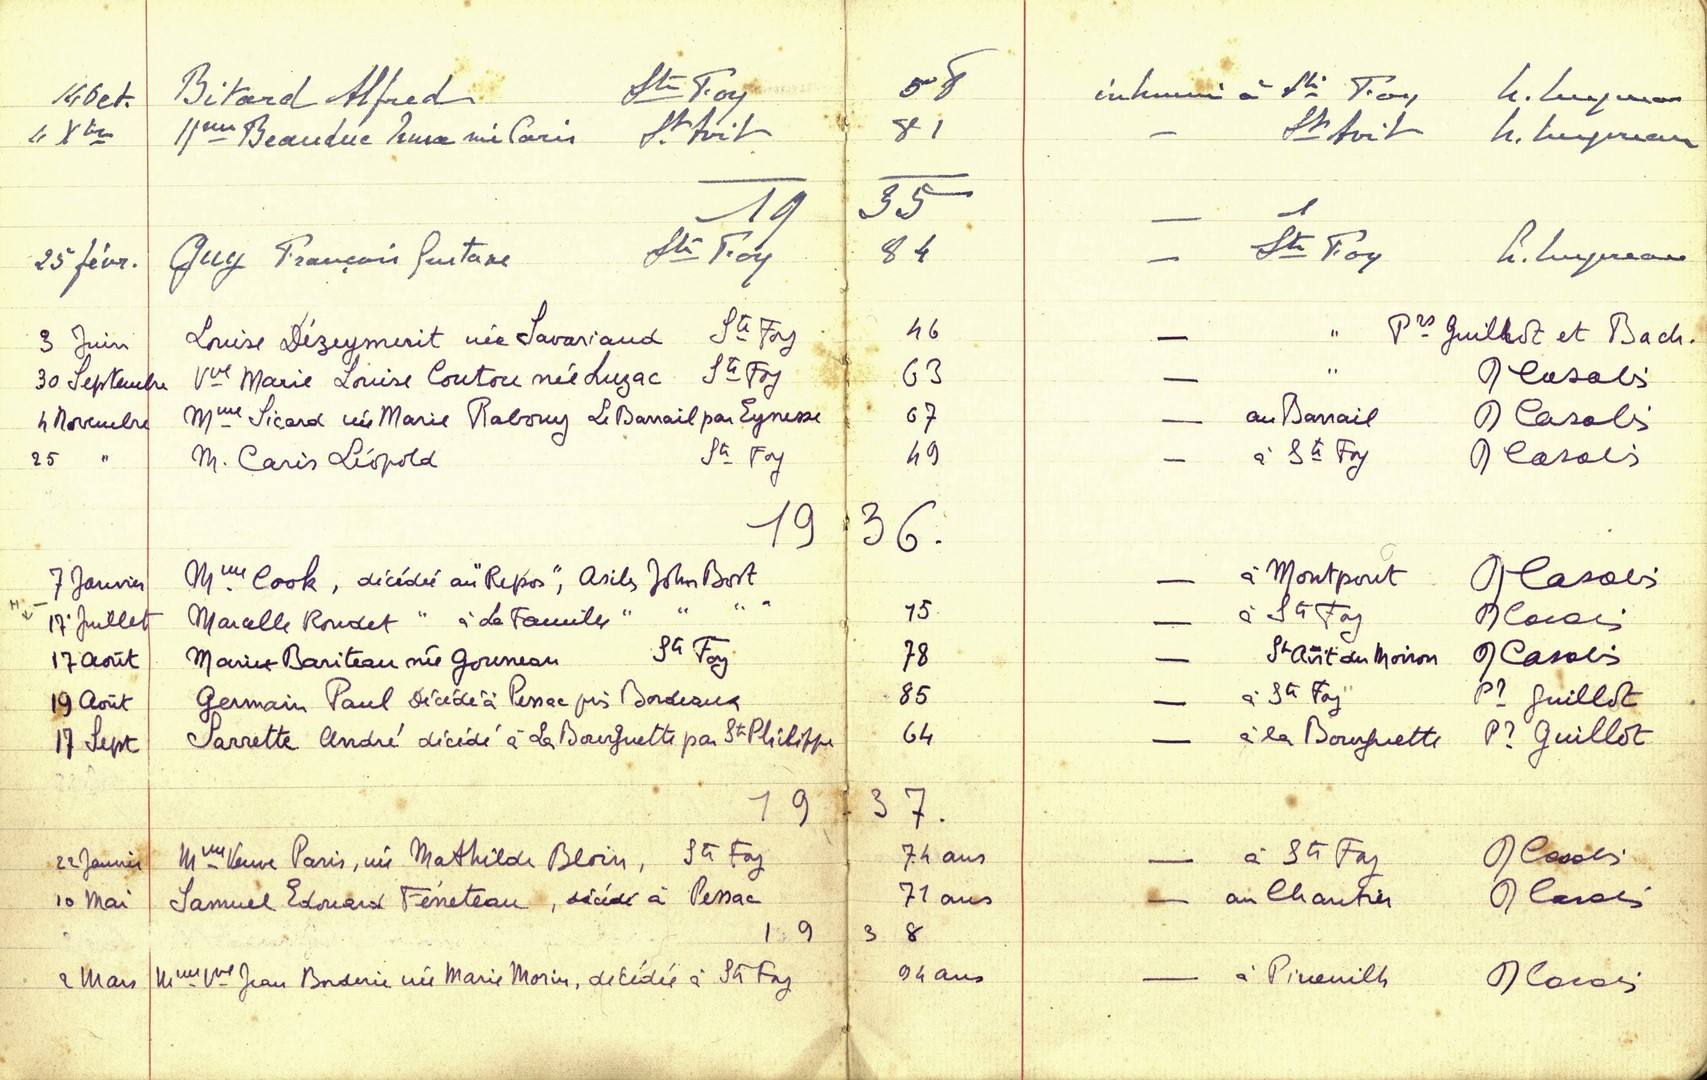 14 Oct. Bitard Alfred Ste Foy 58 inhumé à Ste Foy
4 Xbre Mme Beauduc née Caris St Avit 81 — St Avit
19 35 —
25 févr. Guy François Gustave Ste Foy 84 — Ste Foy
3 Juin Louise Dézeymerit née Savariaud Ste Foy 46 — " Prs Guillot et Bach.
30 Septembre Vve Marie Louise Coutou née Luzac Ste Foy 63 — " Casalis
4 Novembre Mme Sicard née Marie Rabouy Le Barrail par Eynesse 67 — au Barrail Casalis
25 " M. Caris Léopold Ste Foy 49 — à Ste Foy Casalis
19 36.
7 Janvier Mme Cook, décédée au "Repos", Asiles John Bost — à Montpont Casalis
17 Juillet Marcelle Roudet " à La Famille " " " " 15 — à Ste Foy Casalis
17 Août Marie Bariteau née Gouneau Ste Foy 78 — St Avit du Moiron Casalis
19 Août Germain Paul décédé à Pessac près Bordeaux 85 — à Ste Foy Pr Guillot
17 Sept Sarrette André décédé à La Bourguette par St Philippe 64 — à la Bourguette Pr Guillot
19 37.
22 Janvier Mme Veuve Paris, née Mathilde Bloin, Ste Foy 74 ans — à Ste Foy Casalis
10 Mai Samuel Edouard Féneteau, décédé à Pessac 71 ans — au Chantier Casalis
19 38
2 Mars Mme Vve Jean Borderie née Marie Morin, décédée à Ste Foy 94 ans — à Pineuilh Casalis